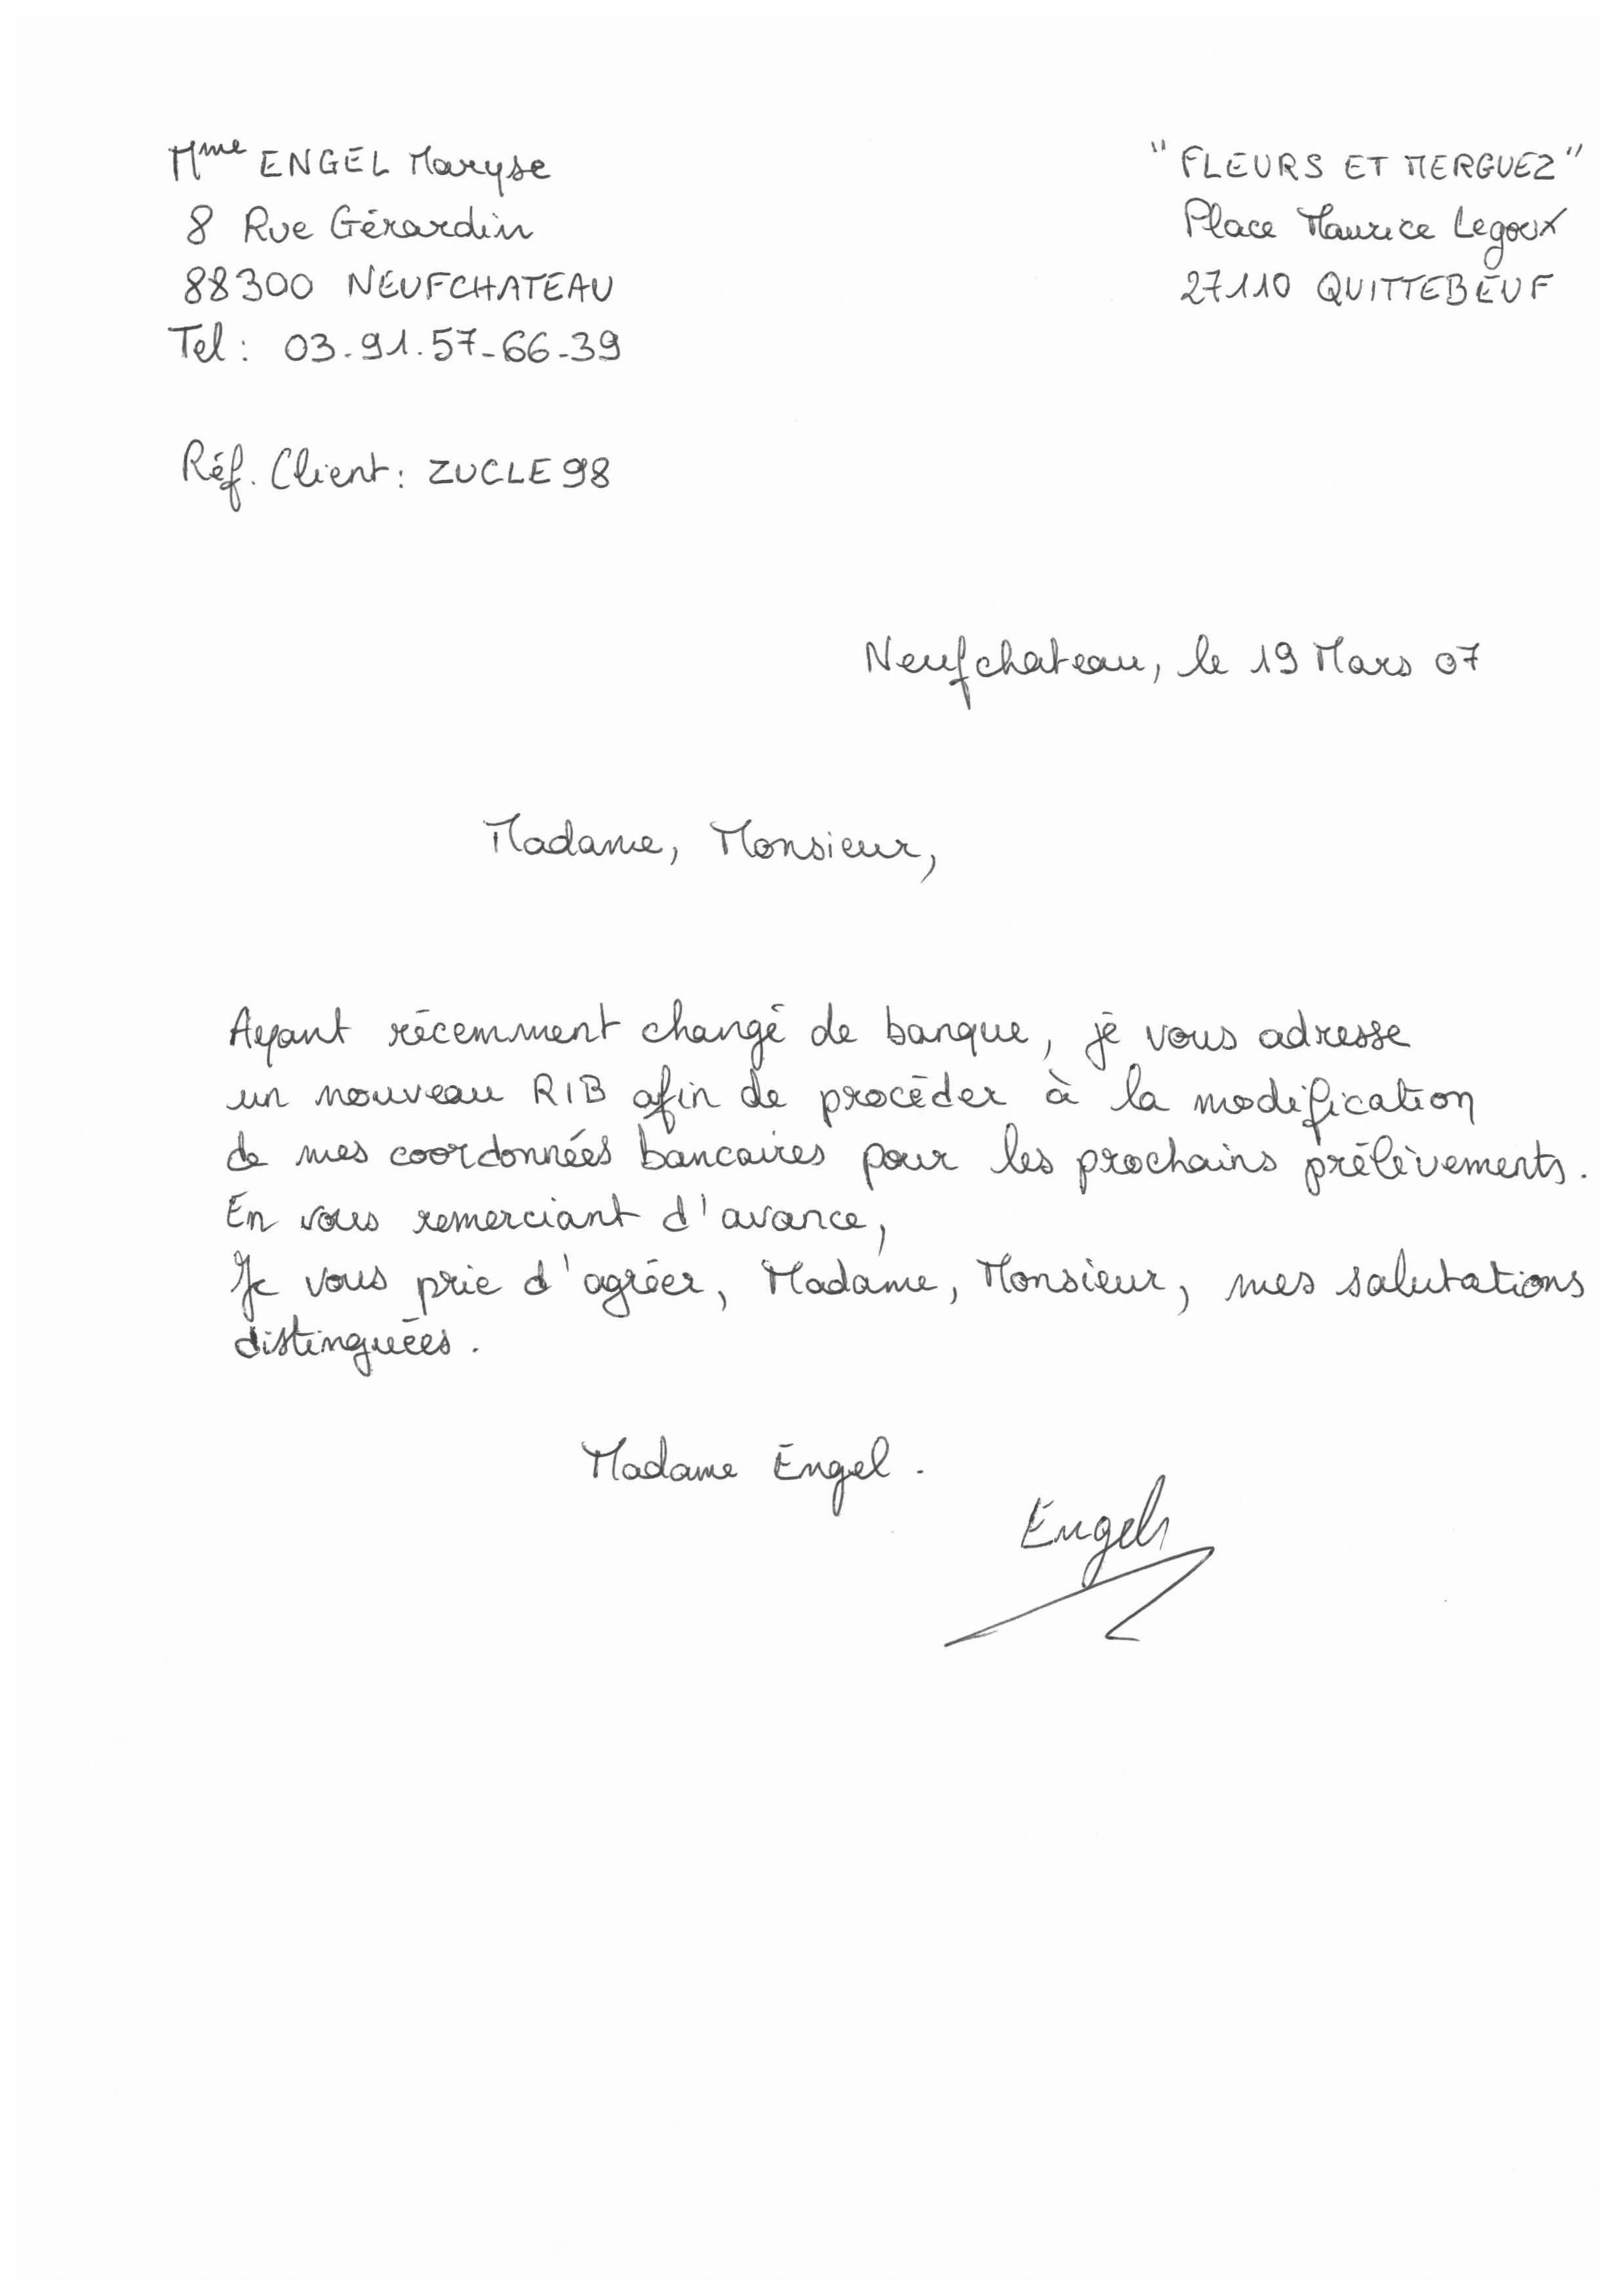 Mme ENGEL Maryse
8 Rue Gérardin
88300 NEUFCHATEAU
Tel : 03.91.57-66-39
"FLEURS ET MERGUEZ"
Place Maurice Legoux
27110 QUITTEBEUF
Réf. Client : ZUCLE98
Neufchateau, le 19 Mars 07
Madame, Monsieur,
Ayant récemment changé de banque, je vous adresse
un nouveau RIB afin de procéder à la modification
de mes coordonnées bancaires pour les prochains prélèvements.
En vous remerciant d'avance,
Je vous prie d'agréer, Madame, Monsieur, mes salutations
distinguées.
Madame Engel.
Engel